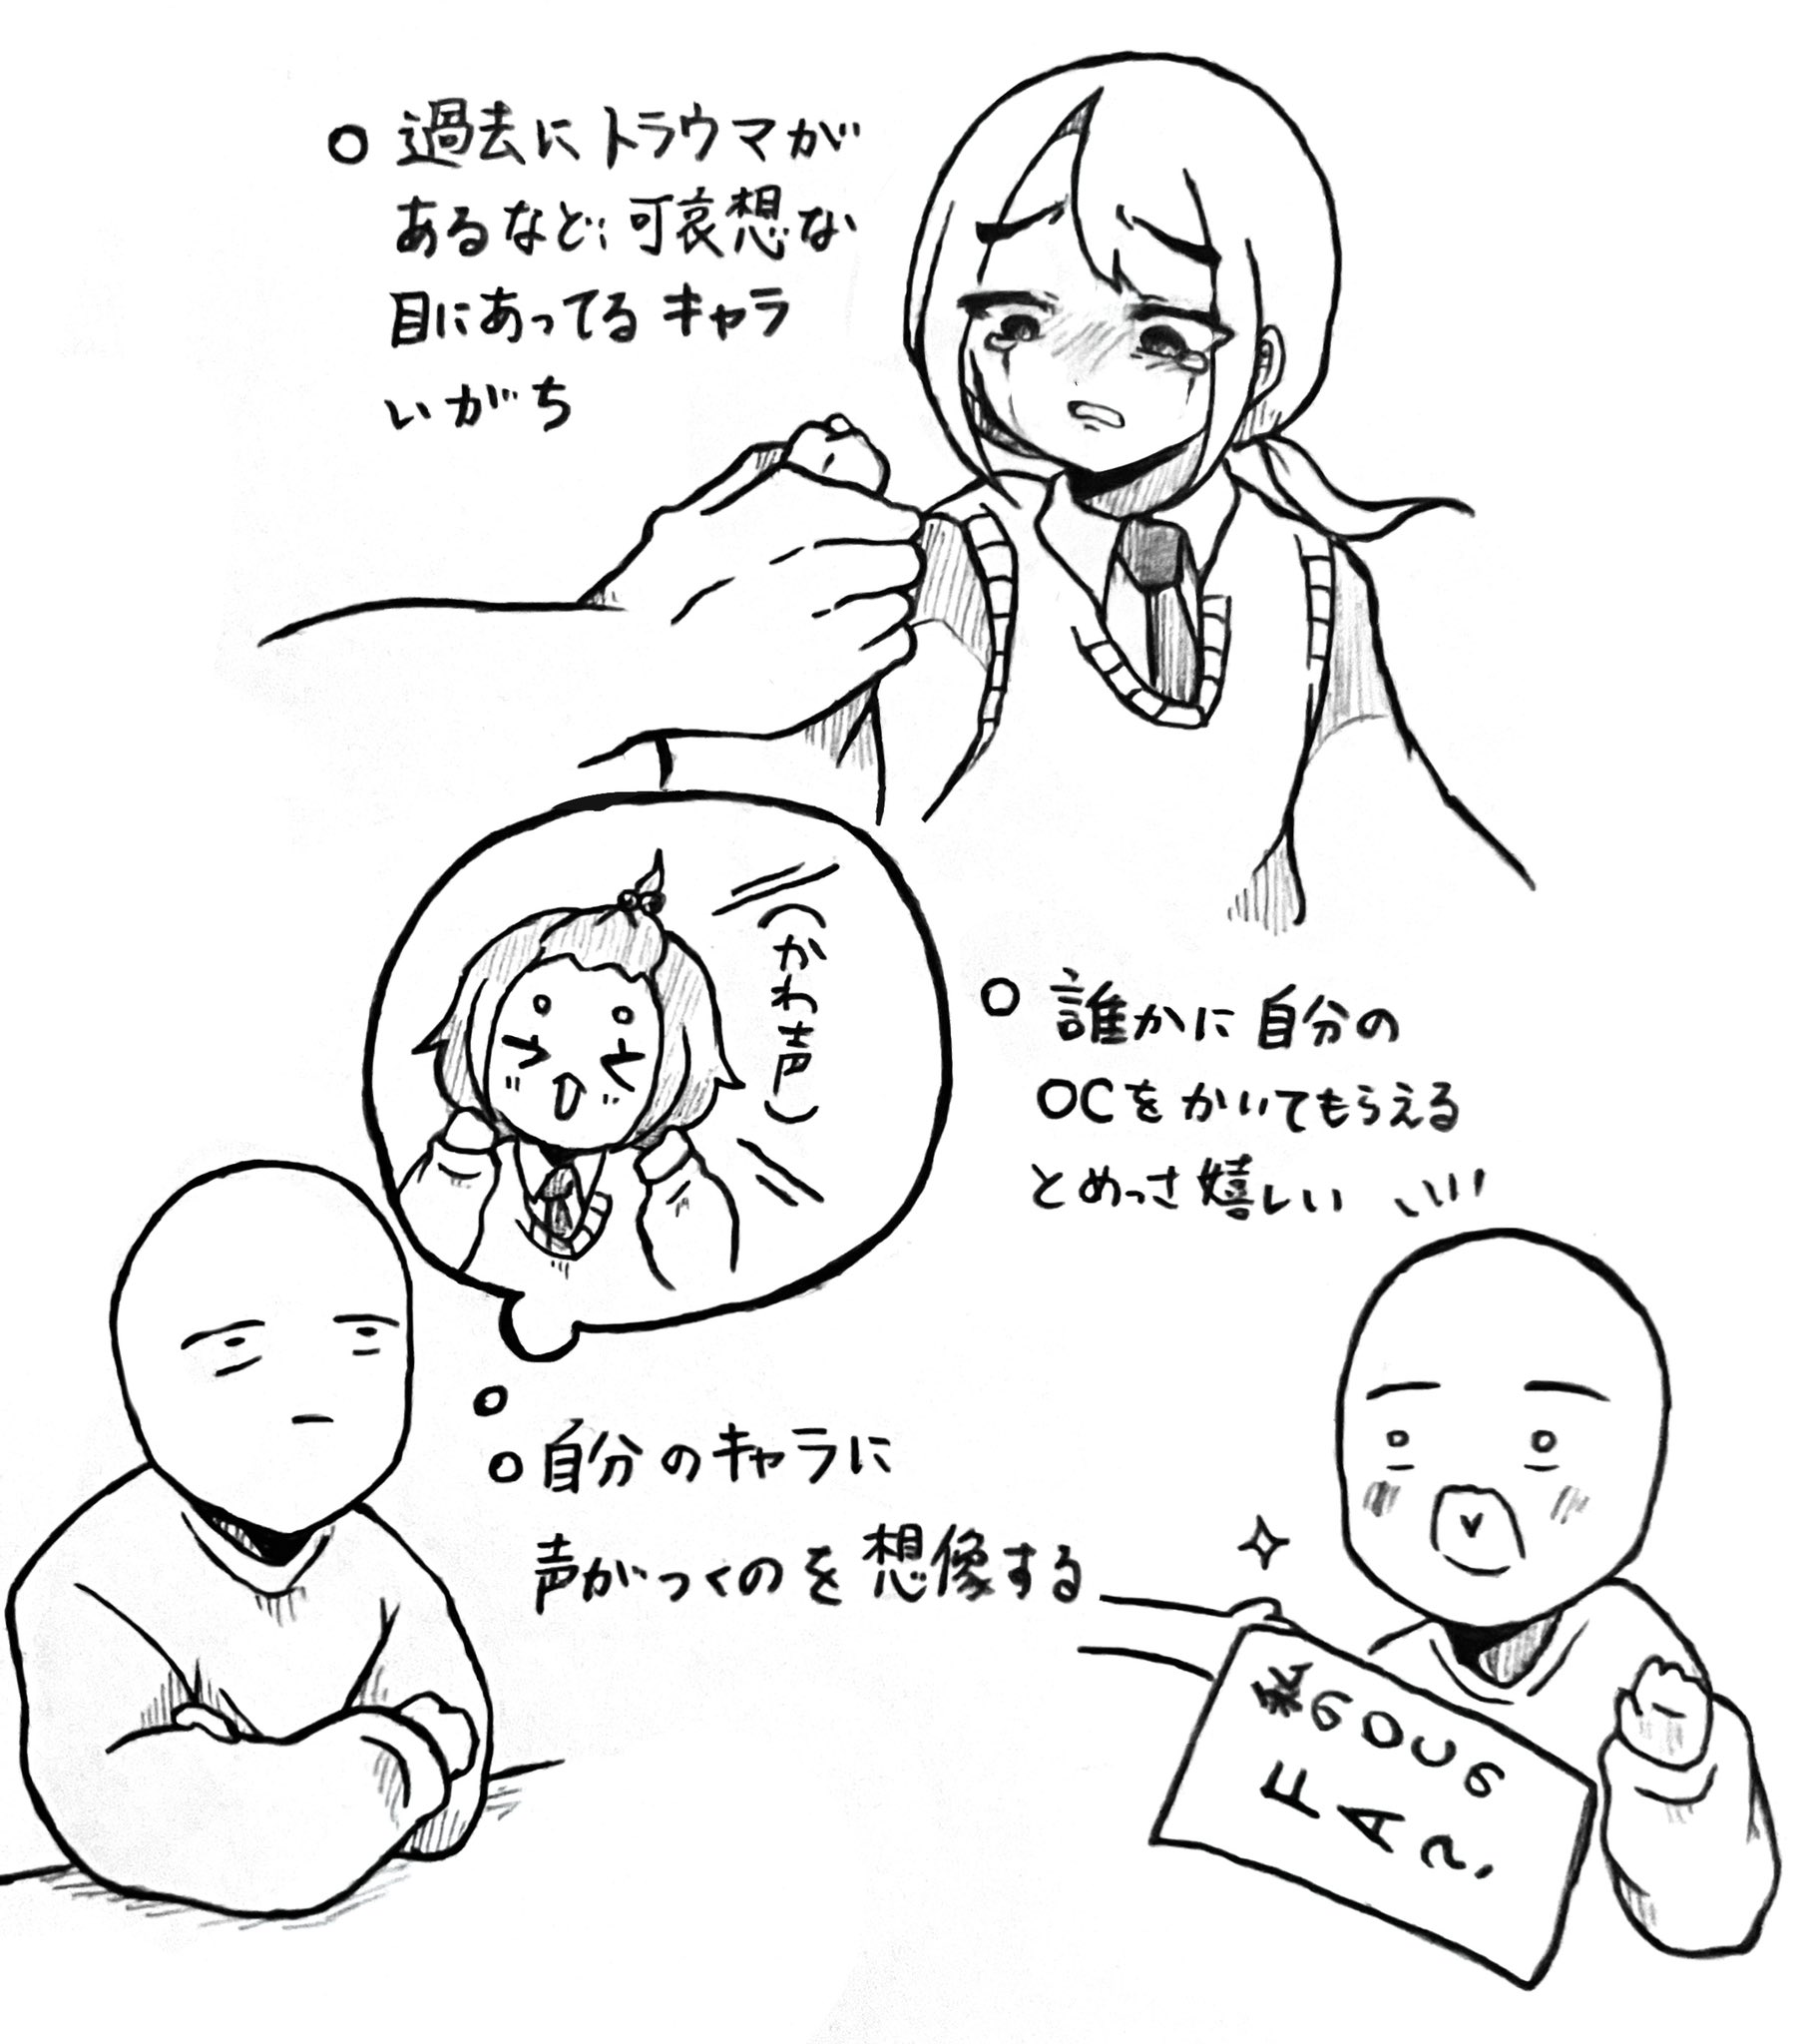 ○ 過去にトラウマが
あるなど、可哀想な
目にあってるキャラ
いがち
(かわ声)
○ 誰かに自分の
OCをかいてもらえる
とめっさ嬉しい
○ 自分のキャラに
声がつくのを想像する
FA